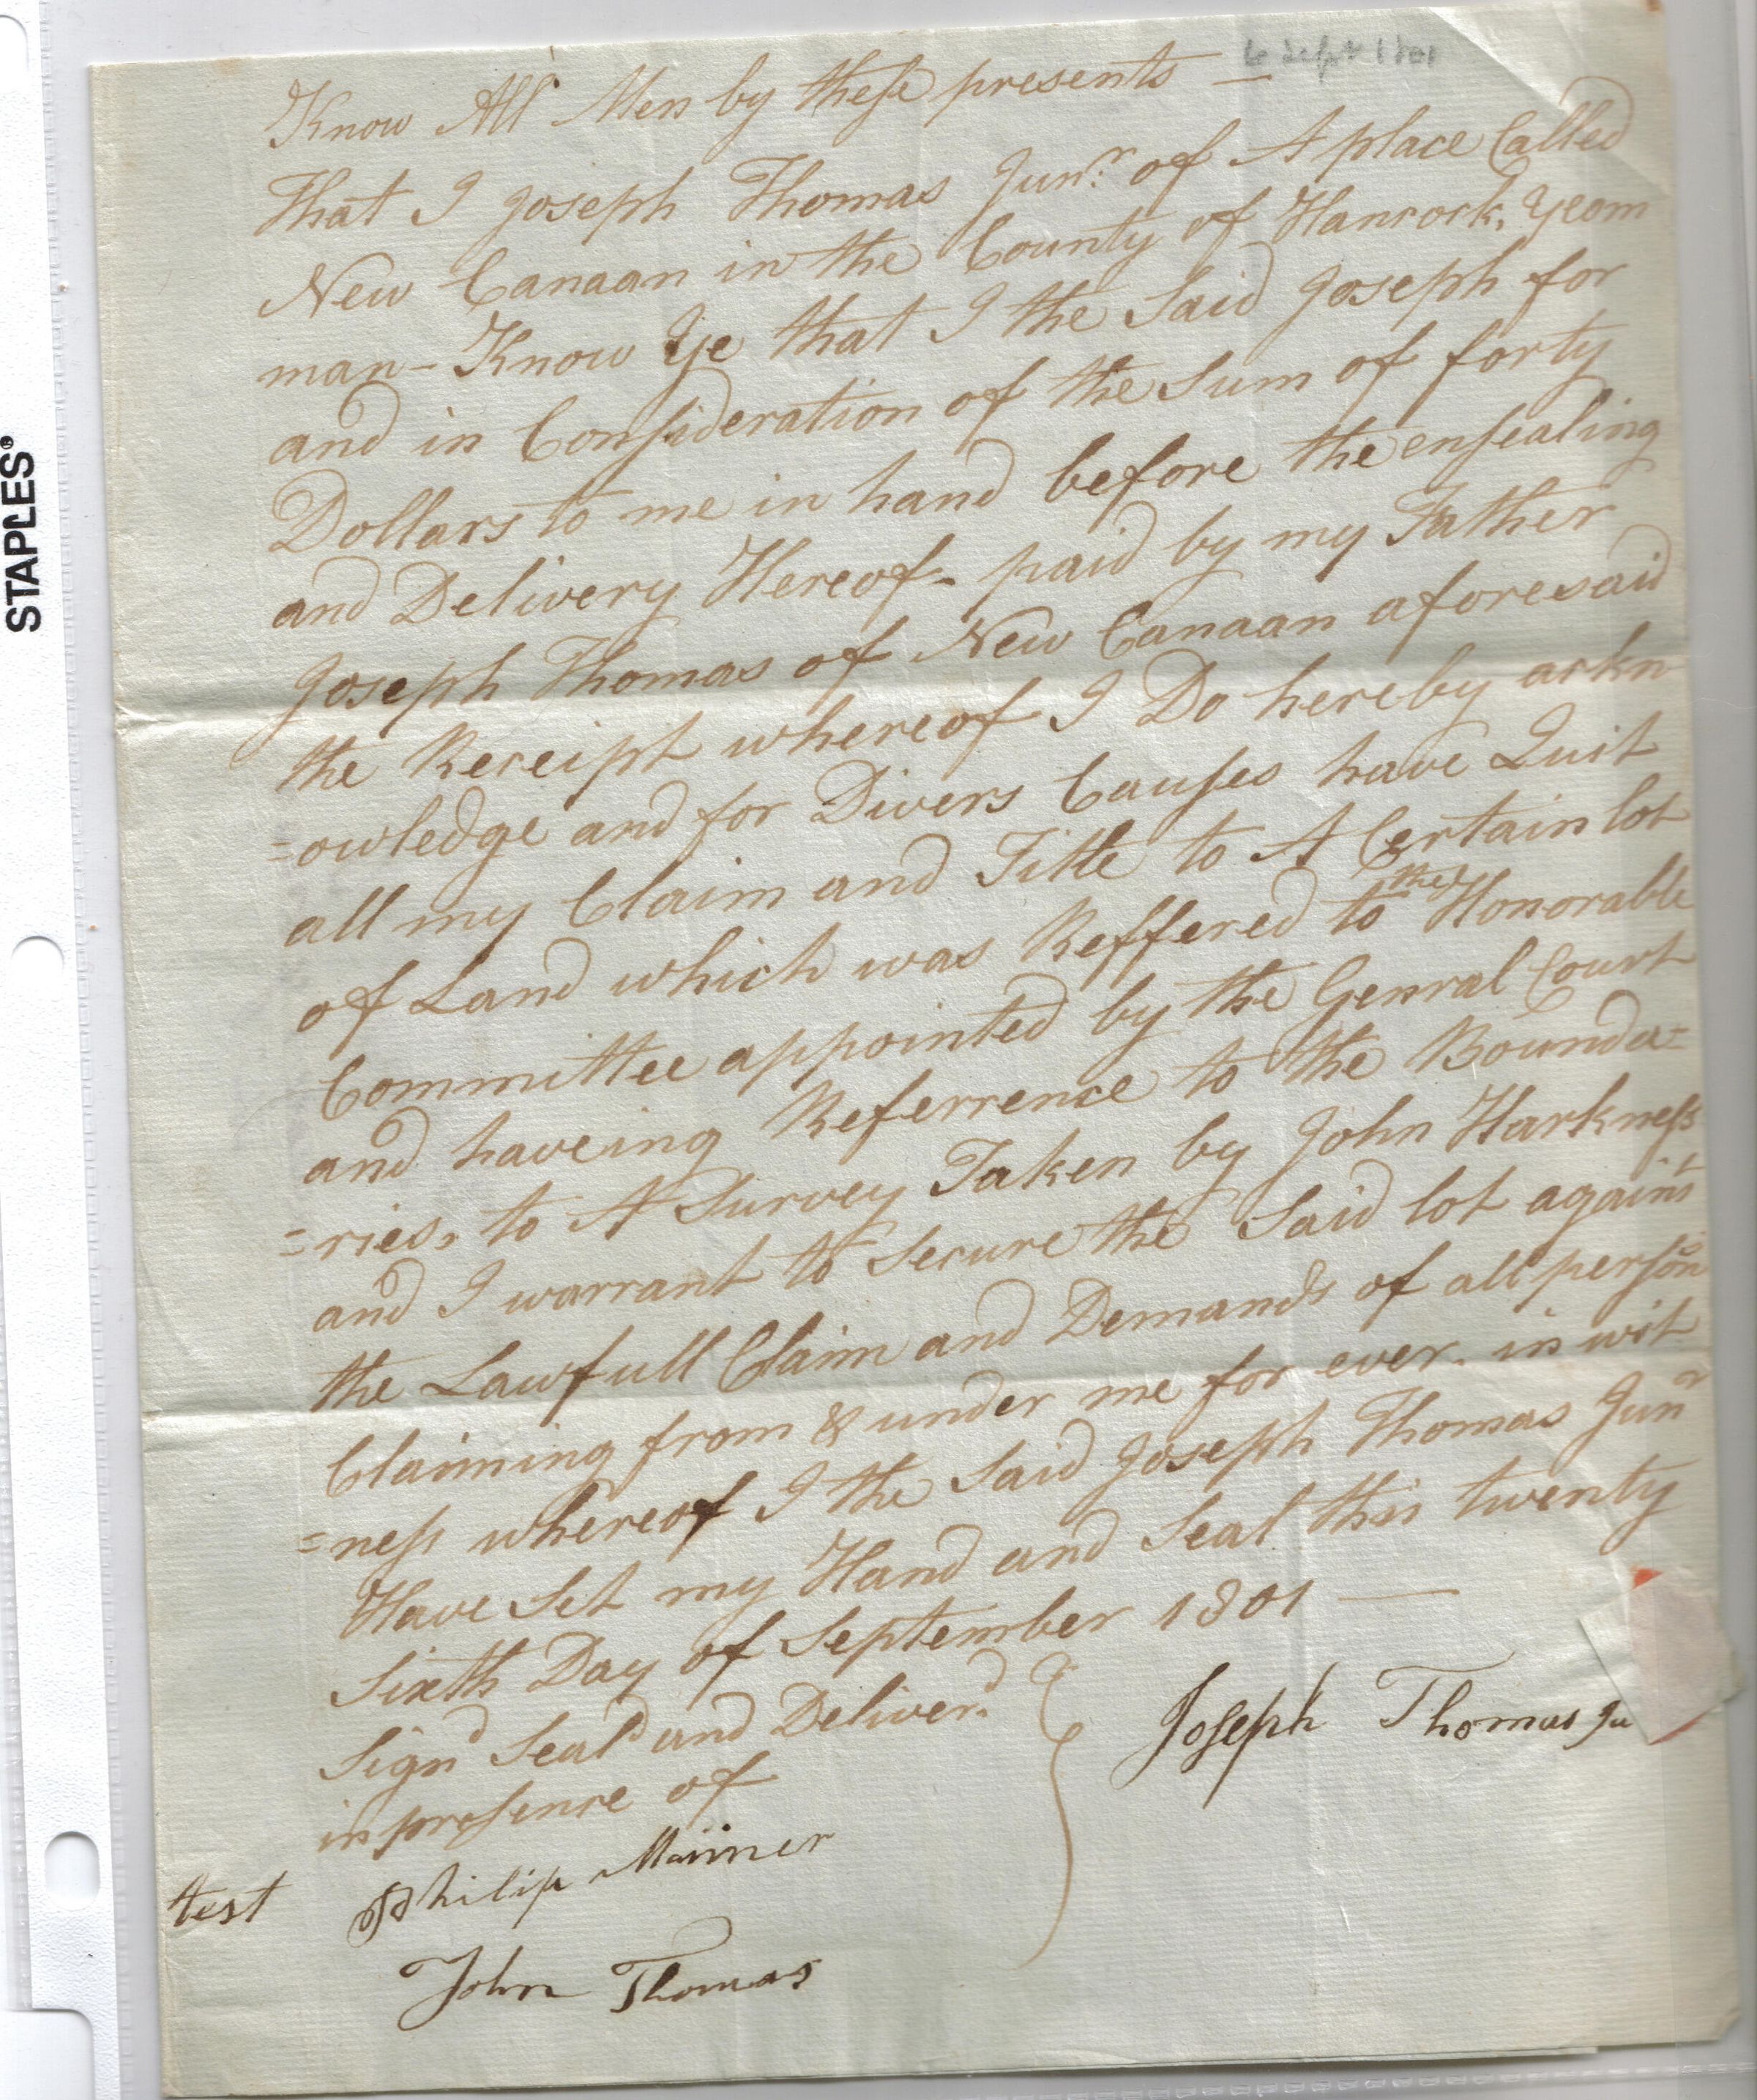 6 Sept 1801
Know All Men by these presents —
that I Joseph Thomas Junr. of A place Called
New Canaan in the County of Hancock, Yeom
man - Know Ye that I the Said Joseph for
and in Consideration of the Sum of forty
Dollars to me in hand before the ensealing
and Delivery Hereof - paid by my Father
Joseph Thomas of New Canaan aforesaid
the Receipt whereof I Do hereby ackn
=owledge and for Divers Causes have Quit
all my Claim and Title to A Certain lot
of Land which was Reffered to the Honorable
Committee appointed by the Genral Court
and haveing Referrence to the Bounda=
=ries, to A Survey Taken by John Harkness
and I warrant to Secure the Said lot against
the Lawfull Claim and Demands of all person
Claiming from & under me for ever. in wit
=ness whereof I the Said Joseph Thomas Junr
Have Set my Hand and Seal this twenty
Sixth Day of September 1801 —
Signd Seald and Deliverd
in presence of
Joseph Thomas Ju
test Philip Mariner
John Thomas
STAPLES®